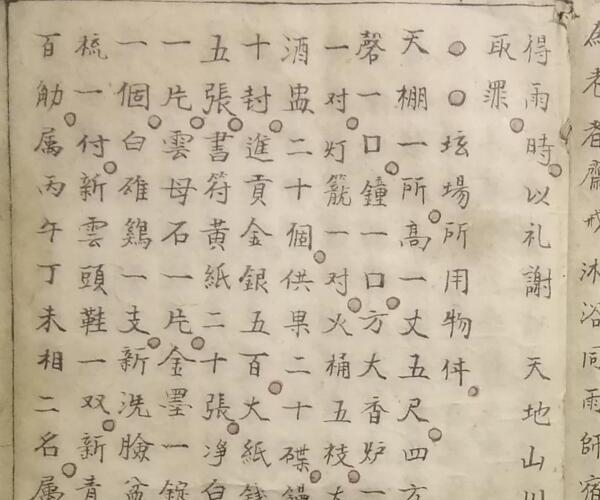 為老者齋戒沐浴同雨師宿
得雨時以礼謝　天地山川
取罪
○○坛場所用物件
天棚一所高一丈五尺四方
磬一口鐘一口方大香炉一
一对灯籠一对火桶五枝大
酒盅二十個供果二十碟饅
十封進貢金銀五百大紙錢
五張書符黃紙二十張净白
一片雲母石一片金墨一錠
一個白雄鷄一支新洗臉盆
梳一付新雲頭鞋一双新青
百觔属丙午丁未相二名属